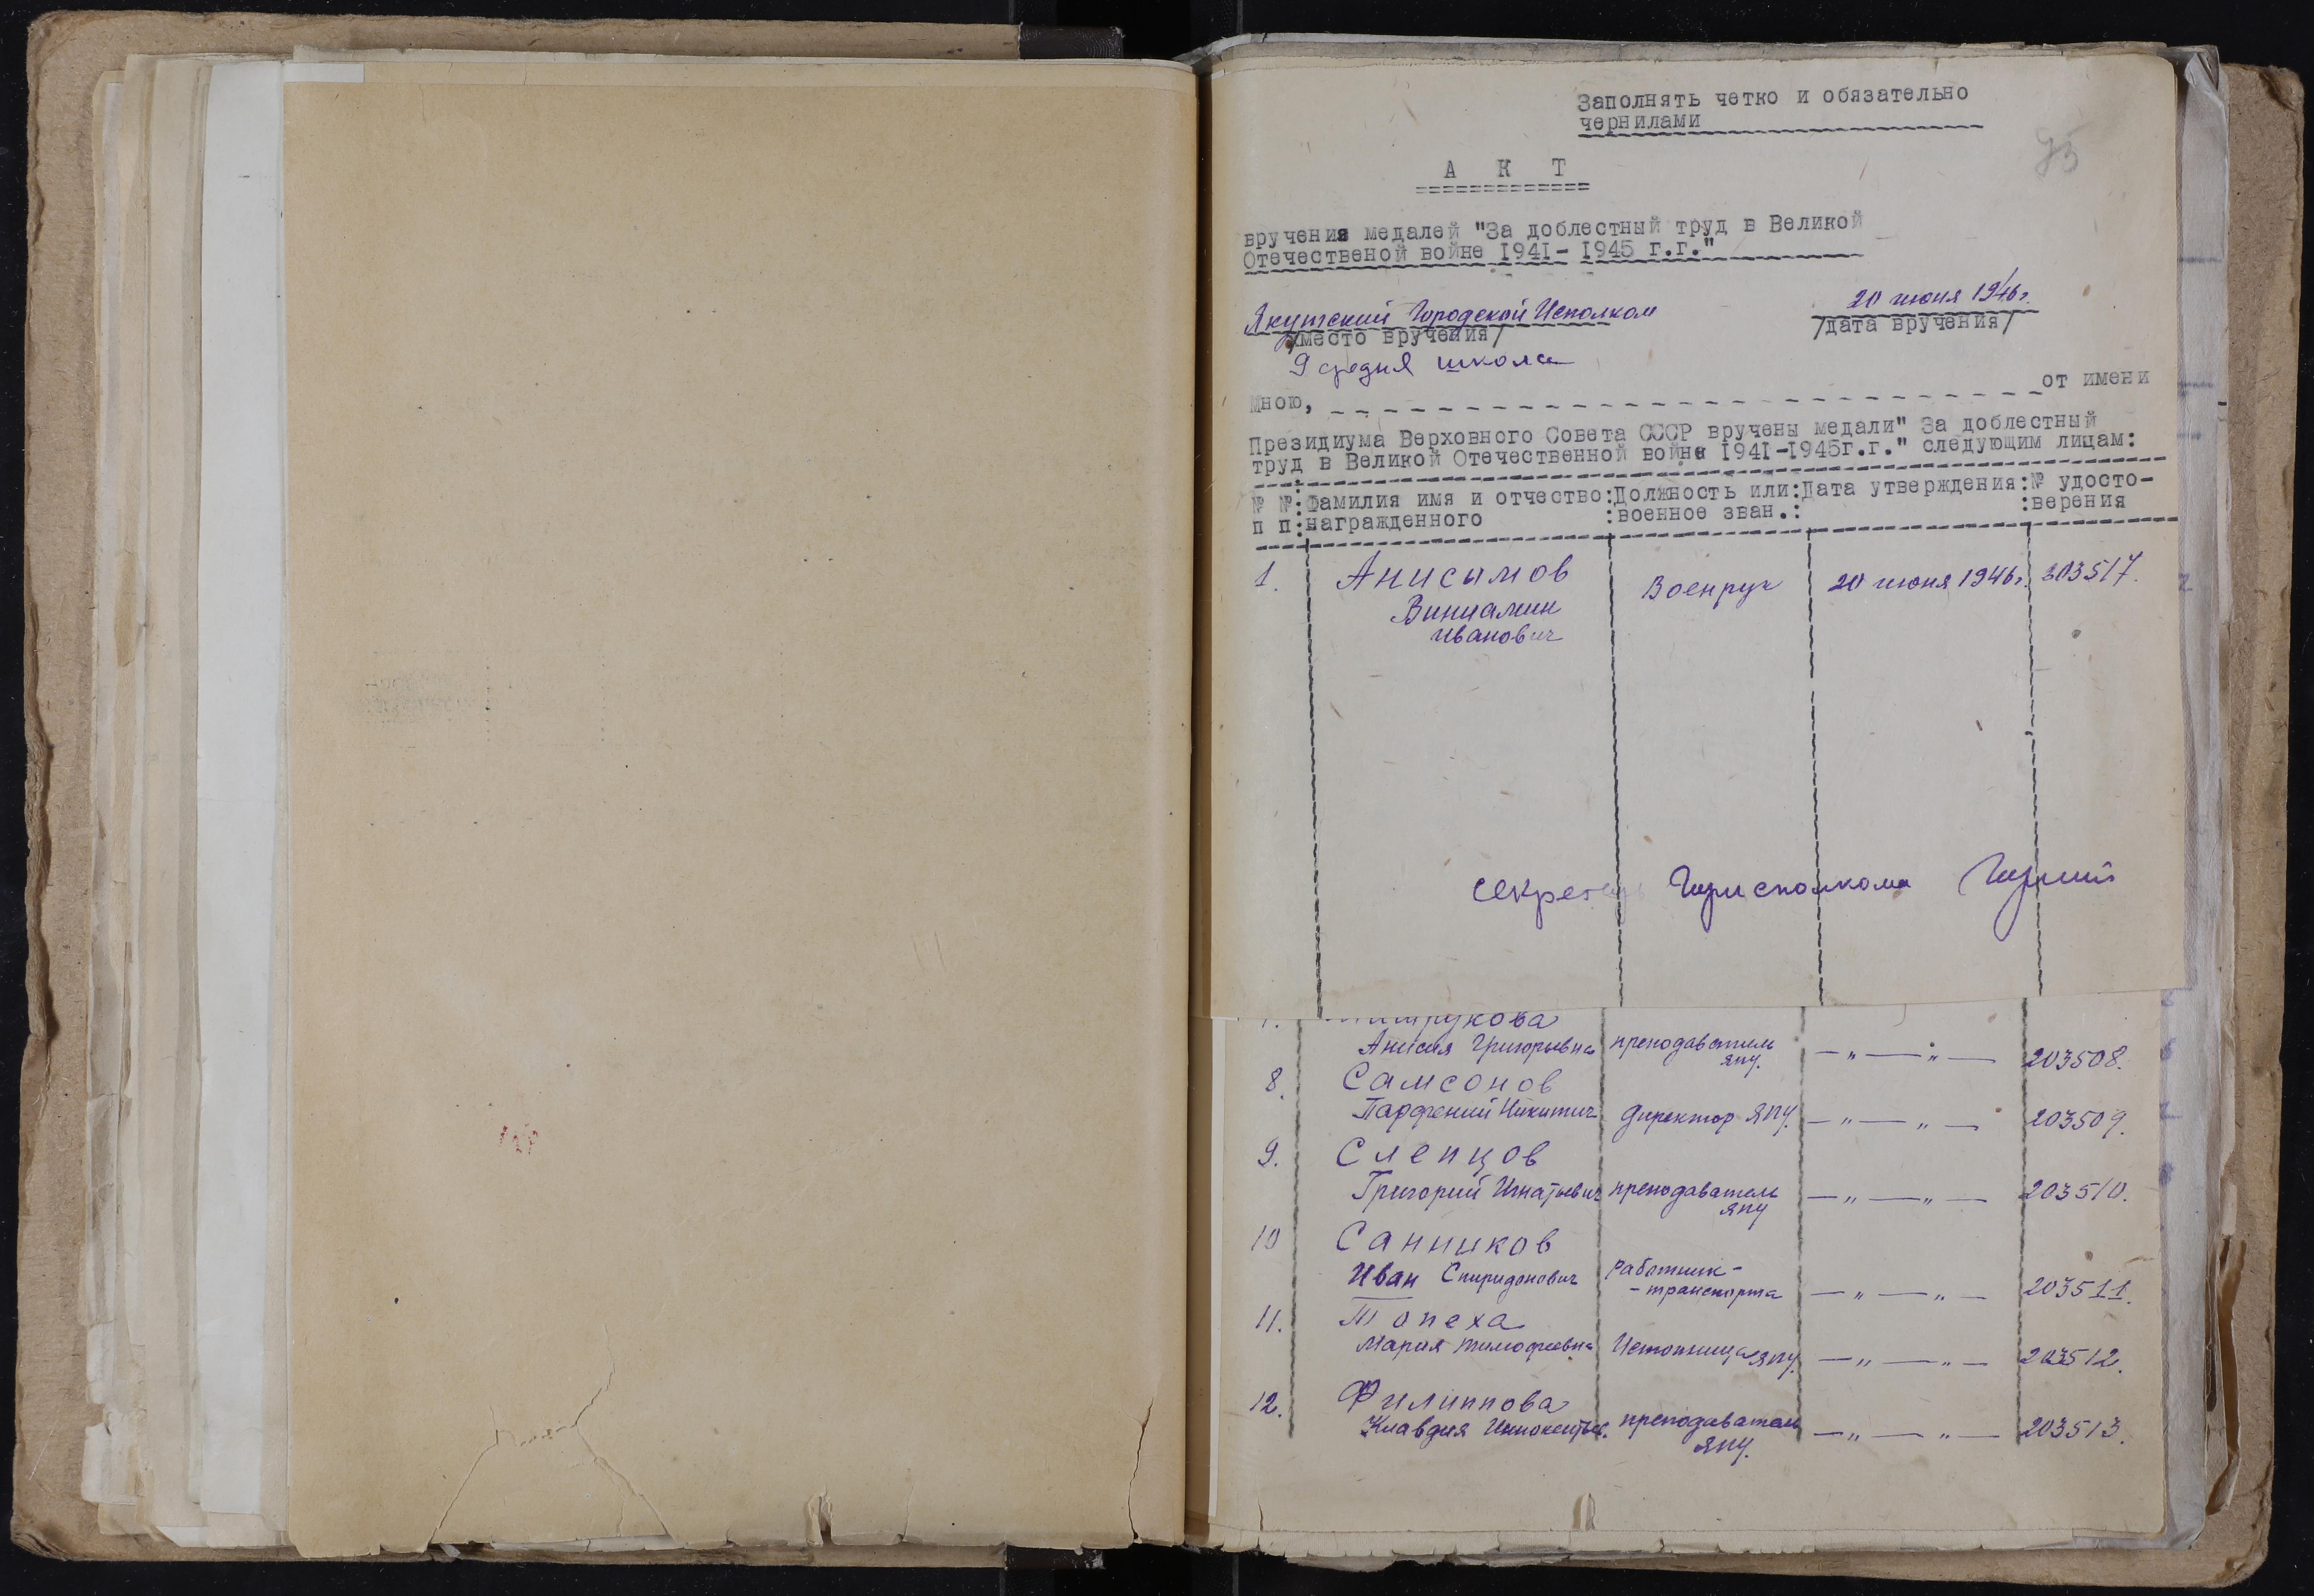 Заполнять четко и обязательно
чернилами
А К Т
вручения медалей "За доблестный труд в Великой
Отечественой войне 1941- 1945 г.г."
Якутский Городской Исполком 20 июня 1946 г.
/место вручения/ /дата вручения/
9 средня школа
Мною, от имени
Президиума Верховного Совета СССР вручены медали" За доблестный
труд в Великой Отечественной войне 1941-1945г.г." следующим лицам:
№ №:Фамилия имя и отчество:Должность или:Дата утверждения:№ удосто-
п п:награжденного :военное зван.: :верения
1. Анисимов Военрук 20 июня 1946 г. 203517.
Виниамин
Иванович
секретарь Горисполкома
Анисия Григорьевна преподаватель ЯПУ. — „ — „ — 203508.
8. Самсонов
Парфений Никитич Директор ЯПУ. — „ — „ — 203509.
9. Слепцов
Григорий Игнатьевич преподаватель ЯПУ — „ — „ — 203510.
10 Санников
Иван Спиридонович Работник-
-транспорта — „ — „ — 203511.
11. Топеха
Мария Тимофеевна Истопница ЯПУ. — „ — „ — 203512.
12. Филиппова
Клавдия Иннокентьев. преподаватель ЯПУ. — „ — „ — 203513.